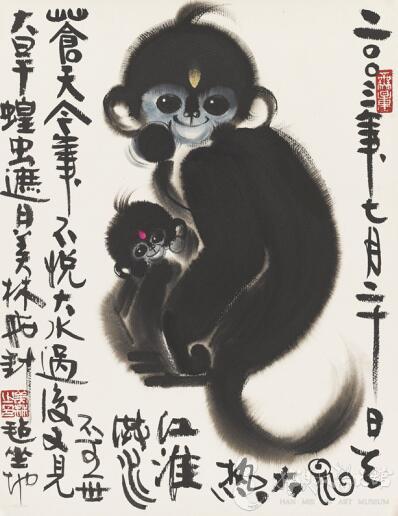 二〇〇三年七月二十日
大
热
江淮
洪水
不可一世
蒼天今年不悦大水過後又見
大旱蝗虫遮日美林
针
毡坐地
HAN MEI LIN ART MUSEUM